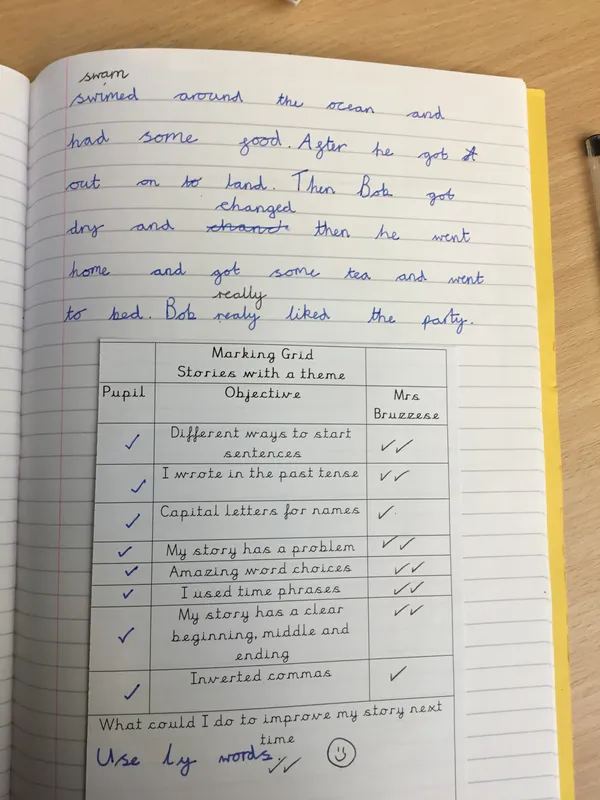 swam
swimed around the ocean and
had some food. After he got
out on to land. Then Bob got
changed
dry and chanct then he went
home and got some tea and went
really
to bed. Bob realy liked the party.
Marking Grid
Stories with a theme
Pupil Objective Mrs
Bruzzese
Different ways to start
sentences
I wrote in the past tense
Capital letters for names
My story has a problem
Amazing word choices
I used time phrases
My story has a clear
beginning, middle and
ending
Inverted commas
What could I do to improve my story next
time
Use ly words.